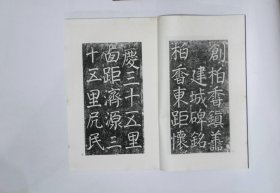 創柏香鎮善
建城碑銘
柏香東距懷
慶三十五里
西距濟源三
十五里凡民